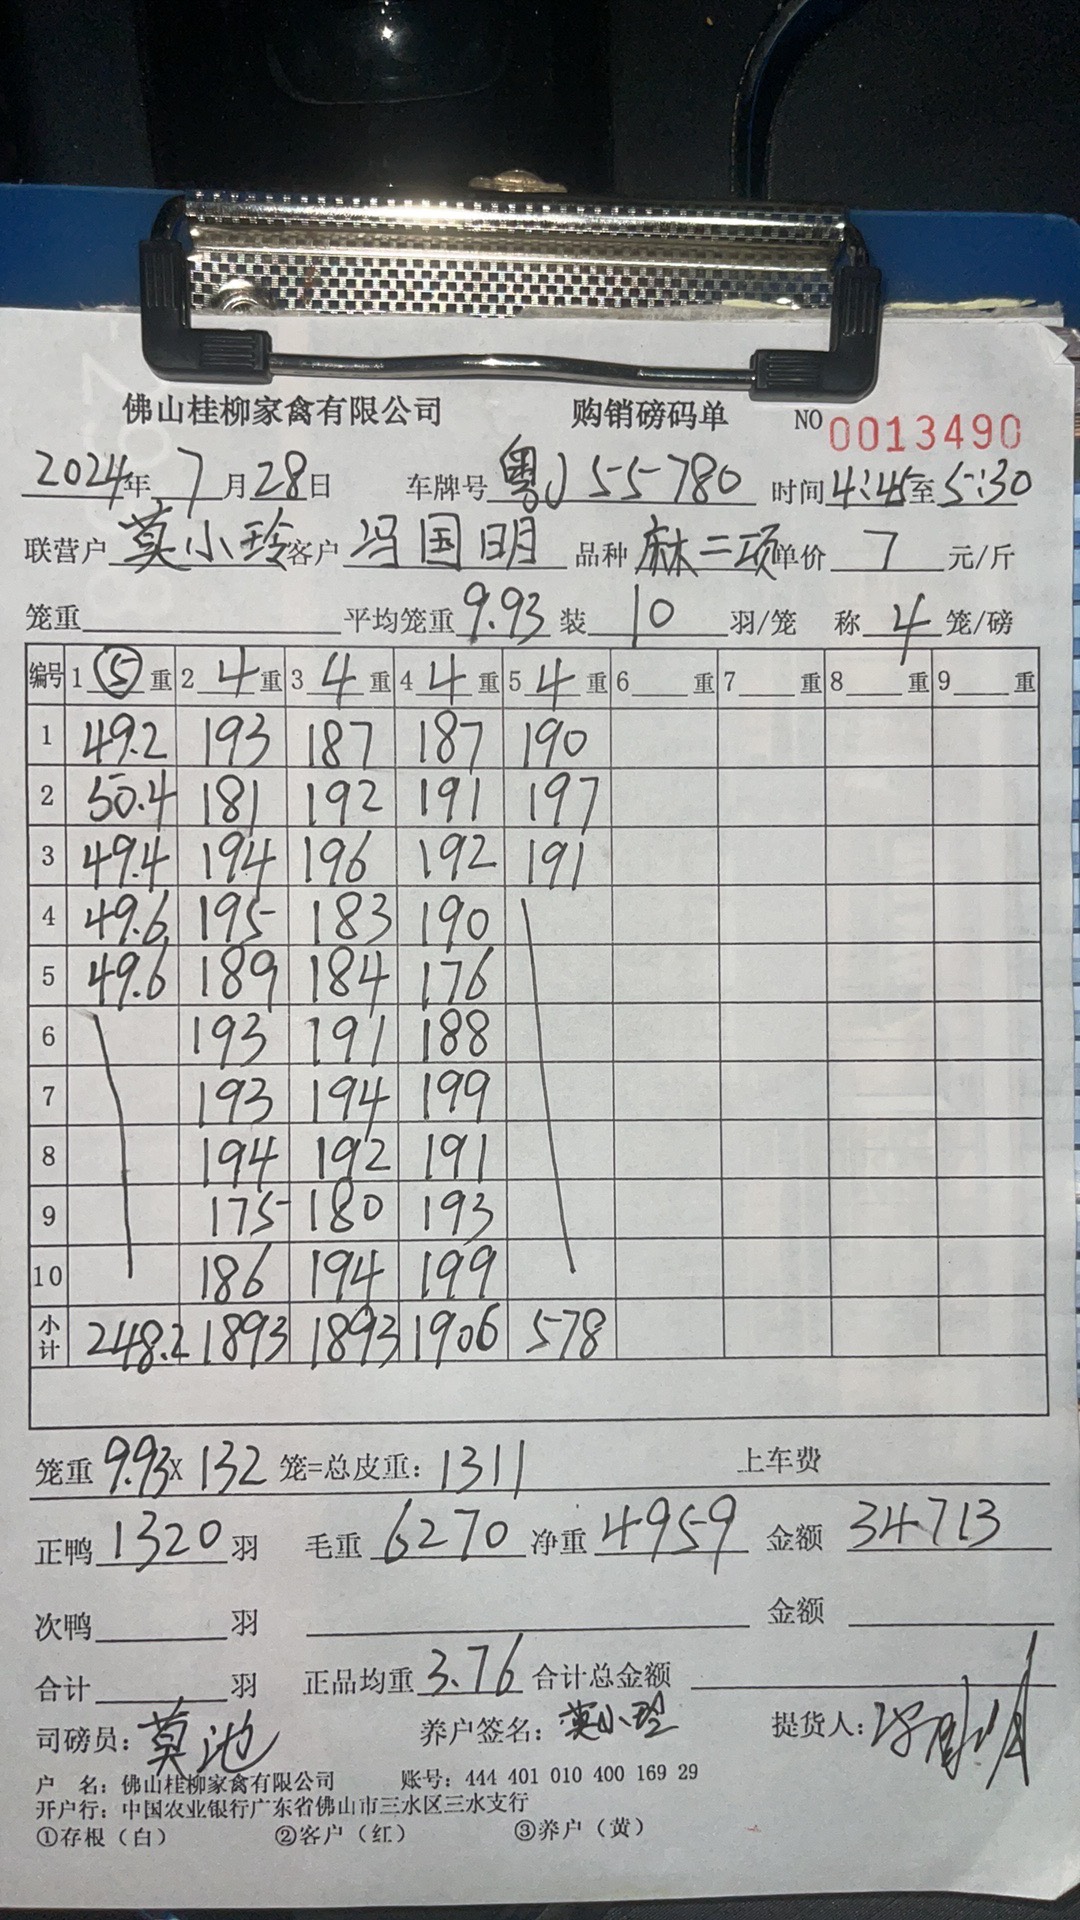 佛山桂柳家禽有限公司 购销磅码单 NO 0013490
2024年 7月28日 车牌号 粤J 55780 时间4:45至5:30
联营户 莫小玲 客户 冯国明 品种 麻二项 单价 7 元/斤
笼重 平均笼重 9.93 装 10 羽/笼 称 4 笼/磅
编号 1 ⑤ 重 2 4 重 3 4 重 4 4 重 5 4 重 6 重 7 重 8 重 9 重
1 49.2 193 187 187 190
2 50.4 181 192 191 197
3 49.4 194 196 192 191
4 49.6 195 183 190
5 49.6 189 184 176
6 193 191 188
7 193 194 199
8 194 192 191
9 175 180 193
10 186 194 199
小计 248.2 1893 1893 1906 578
笼重 9.93 X 132 笼=总皮重: 1311 上车费
正鸭 1320 羽 毛重 6270 净重 4959 金额 34713
次鸭 羽 金额
合计 羽 正品均重 3.76 合计总金额
司磅员: 莫池 养户签名: 莫小玲 提货人:
户 名: 佛山桂柳家禽有限公司 账号: 444 401 010 400 169 29
开户行: 中国农业银行广东省佛山市三水区三水支行
①存根(白) ②客户(红) ③养户(黄)